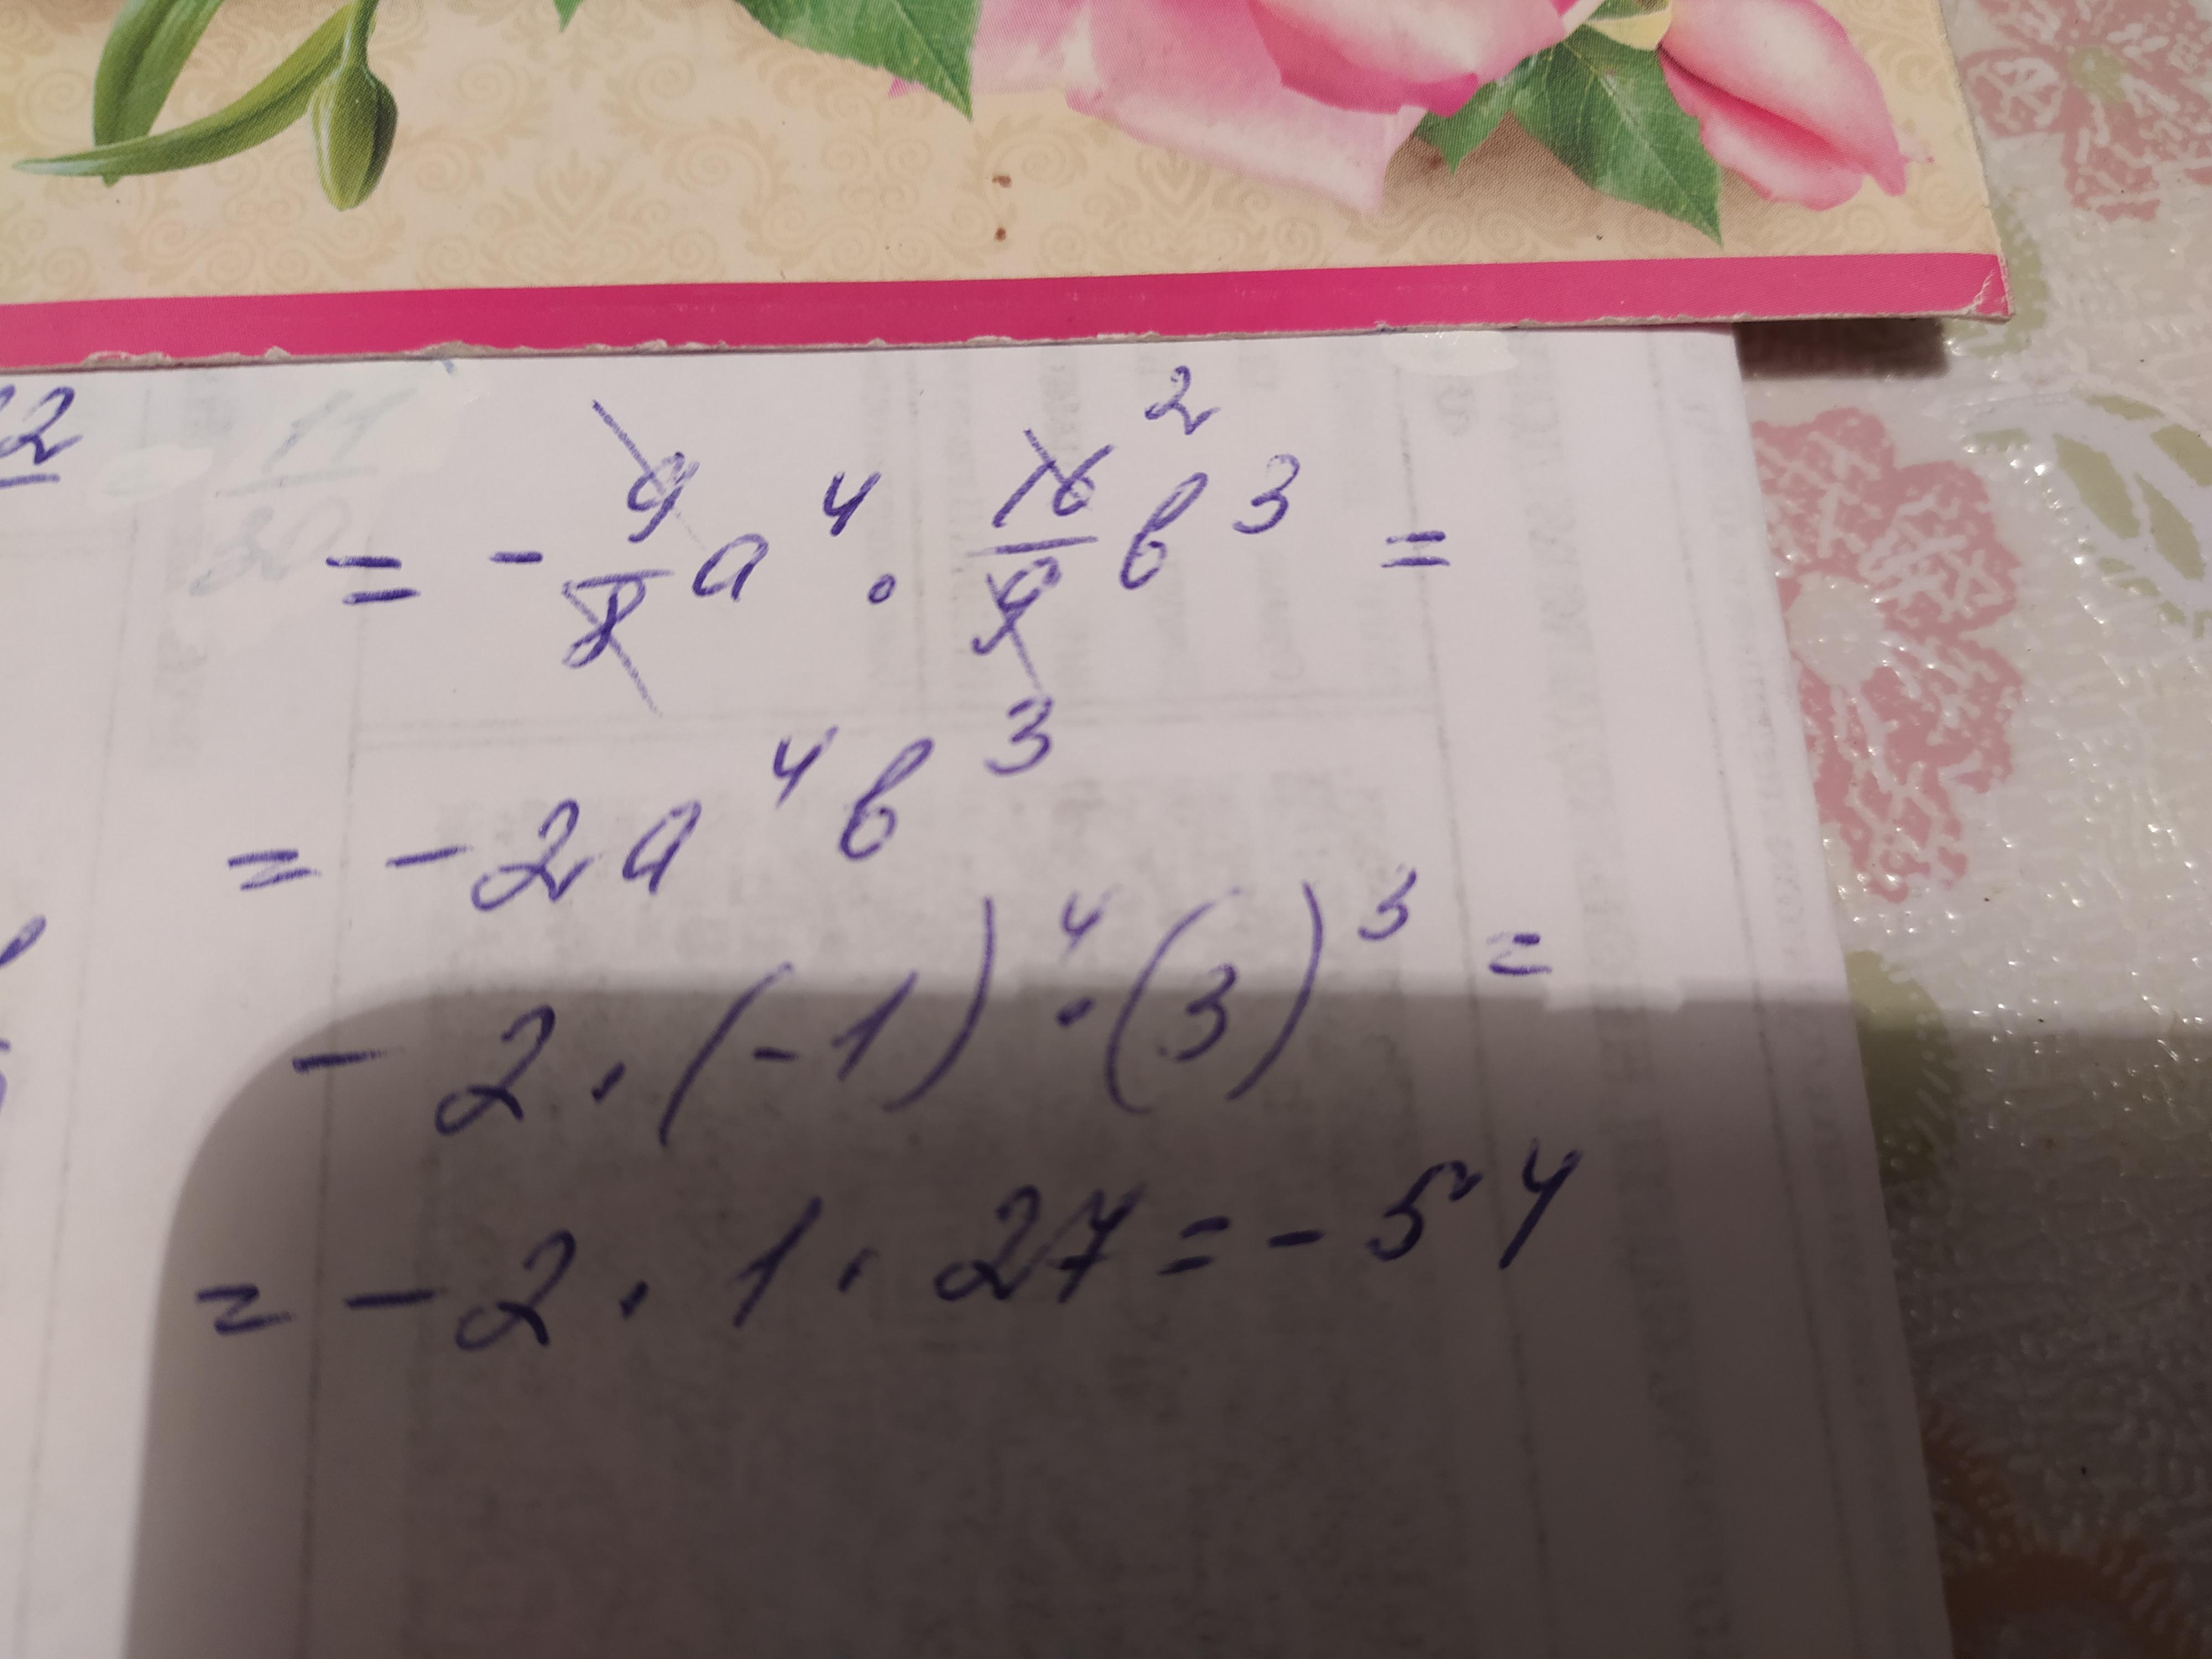 = - 9/8 a⁴ · 16/9 ² в³ =
= - 2 а⁴ в³
- 2 · (-1)⁴ · (3)³ =
= - 2 · 1 · 27 = - 54